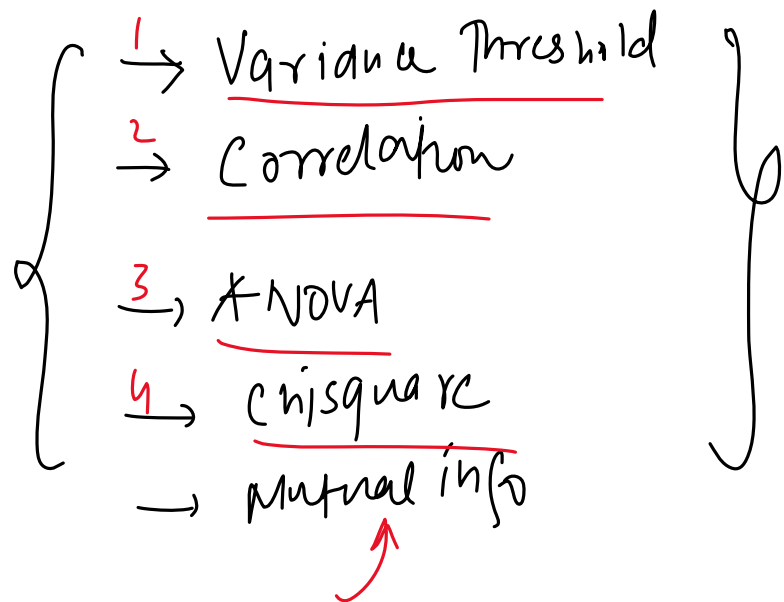 1 → Variance Threshold
2 → Correlation
3 → ANOVA
4 → Chisquare
→ Mutual info